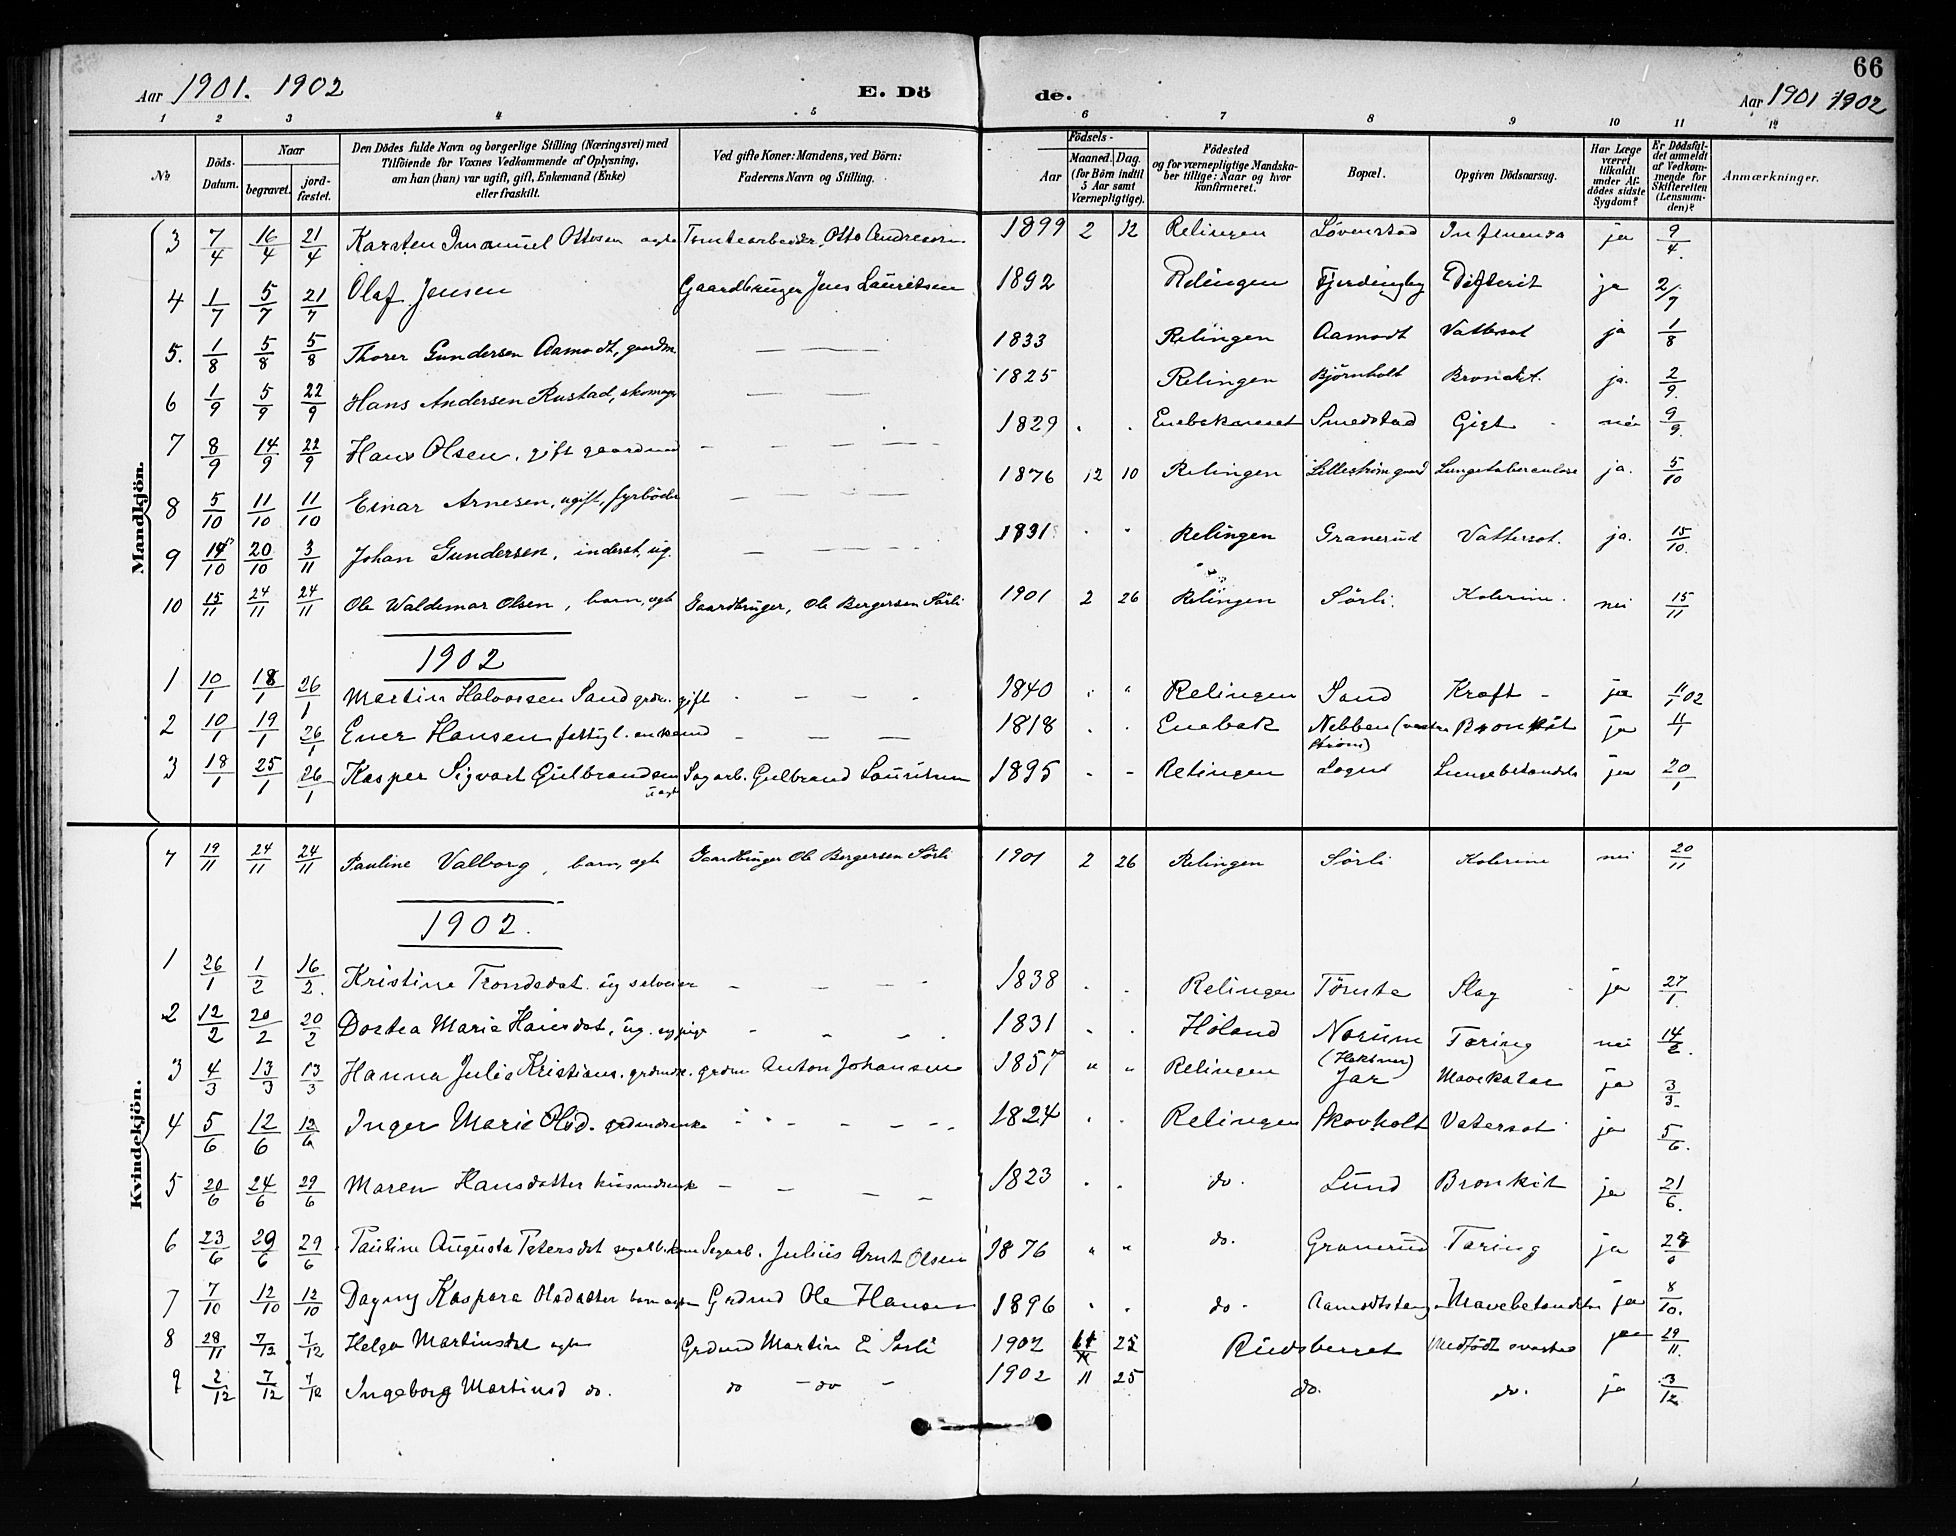 66
Aar 1901. 1902 E. Dö de. Aar 1901 1902
1 2 3 4 5 6 7 8 9 10 11 12
№ Döds-Datum. Naar begravet. jord-fæstet. Den Dödes fulde Navn og borgerlige Stilling (Næringsvei) med Tilföiende for Voxnes Vedkommende af Oplysning, om han (hun) var ugift, gift, Enkemand (Enke) eller fraskilt. Ved gifte Koner: Mandens, ved Börn: Faderens Navn og Stilling. Födsels- Aar Maaned. Dag. (for Börn indtil 5 Aar samt Værnepligtige). Födested og for værnepligtige Mandska-ber tillige: Naar og hvor konfirmeret. Bopæl. Opgiven Dödsaarsag. Har Læge været tilkaldt under Af-dödes sidste Sygdom? Er Dödsfal-det anmeldt af Vedkom-mende for Skifteretten (Lensman-den)? Anmærkninger.
Mandkjön.
3 7/4 16/4 21/4 Karsten Imanuel Ottesen ægte Tomtearbeider Otto Andresen 1899 2 12 Relingen Lövenstad Influensa ja 9/4.
4 1/7 5/7 21/7 Olaf Jensen Gaardbruger Jens Lauritsen 1892 Relingen Fjerdingby Difterit ja 2/7
5. 1/8 5/8 5/8 Thorer Gundersen Aamodt, gaardm. — — — 1833 Relingen Aamodt Vattersot ja 1/8
6 1/9 5/9 22/9 Hans Andersen Rustad, skomager — — — 1825 Relingen Björnholt Bronchit. ja. 2/9.
7 8/9 14/9 22/9 Hans Olsen, gift gaardmand — — — — 1829 . . Enebakneset Smedstad Gigt nei 9/9.
8 5/10 11/10 11/10 Einar Arnesen, ugift, fyrböder — — — — 1876 12 10 Relingen Lilleström gaard Lungetuberculose ja. 5/10
9 14/10 20/10 3/11 Johan Gundersen, inderst, ug. — — — — 1831 " " Relingen Granerud Vattersot. ja. 15/10.
10 15/11 24/11 24/11 Ole Waldemar Olsen, barn, ægte Gaardbruger, Ole Bergersen Sörli 1901 2 26 Relingen Sörli. Kolerine. nei 15/11
1902
1 10/1 18/1 26/1 Martin Halvorsen Sand grdm. gift - — - - 1840 " " Relingen Sand Kræft - ja 11/1 02
2 10/1 19/1 26/1 Ener Hansen fattigl. enkemd - — — 1818 . . Enebak Nebben (vestre Ström) Bronkit ja 11/1
3 18/1 25/1 26/1 Kasper Sigvart Gulbrandsen uægte Sagarb. Gulbrand Lauritsen 1895 - - Relingen Lagud Lungebetændelse ja 20/1
Kvindekjön.
7 19/11 24/11 24/11 Pauline Valborg, barn, ægte Gaardbruger Ole Bergersen Sörli 1901 2 26 Relingen Sörli Kolerine nei 20/11
1902.
1 26/1 1/2 16/2. Kristine Trondsdat. ug selveier - - - - 1838 . . Relingen Törnte Slag ja 27/1.
2 12/2 20/2 20/2 Dortea Marie Hansdat, ug. - - - 1831 . . Höland Norum Tæring nei 14/2.
3 4/3 13/3 13/3 Hanna Julie Kristians. grdmdk. grdm Anton Johansen 1857 " " Relingen Jar Mavekatar ja 3/3.
4 5/6 12/6 12/6 Inger Marie Olsd. grdmdsenke - - - - 1824 . . Relingen Skovholt Vatersot ja 5/6.
5 20/6 24/6 29/6 Maren Hansdatter husmdsenk - - - - 1823 . . do. Lund Bronkit ja 21/6.
6 23/6 29/6 29/6 Pauline Augusta Petersdat Sagarb. Julius Arnt Olsen 1876 " " do. Granerud Tæring ja 28/6
7 7/10 12/10 12/10 Dagny Kaspara Olsdatter barn Grdmd Ole Hansen 1896 . . do - Mavebetændelse ja 8/10.
8 28/11 7/12 7/12 Helga Martinsdat ægte Grdmd Martin E Sörli 1902 11 25 Rudsberget Medfödt svaghed ja 29/11.
9 2/12 7/12 7/12 Ingeborg Martinsd do. do - do - 1902 11 25 do. do. ja 3/12